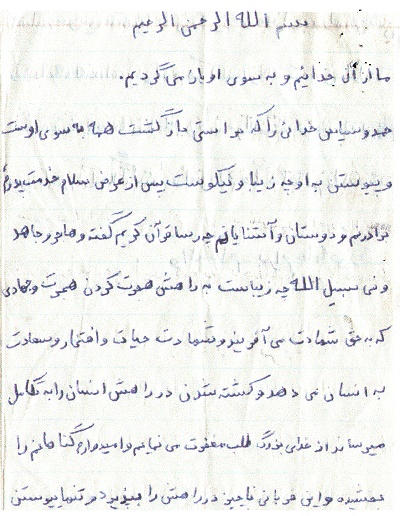 بسم الله الرحمن الرحیم
ما از آن خدائیم و به سوی او باز می گردیم.
حمد و سپاس خدائی را که براستی بازگشت همه به سوی اوست
و پیوستن به او چه زیبا و نیکوست پس از عرض سلام خدمت پدرم
برادرم و دوستان و آشنایانم چه رسا قرآن کریم گفته و هاجر و جاهد
و فی سبیل الله چه زیباست به راهش هجرت کردن هجرت و جهادی
که به حق شهادت می آفریند و شهادت حیات و افتخار و سعادت
به انسان می دهد و کشته شدن در راهش انسان را به تکامل
میرساند از خدای بزرگ طلب مغفرت می نمایم و امیدوارم گناهانم را
بخشیده و این قربانی ناچیز در راهش را بپذیرد و تنها پیوستن